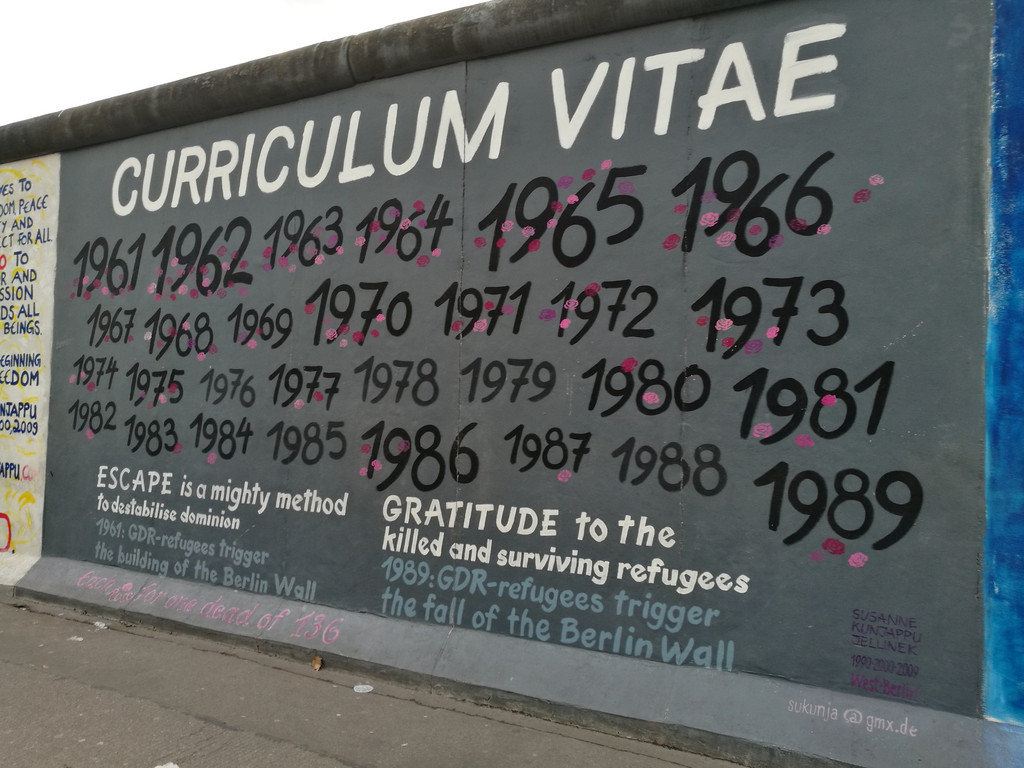 CURRICULUM VITAE
1961 1962 1963 1964 1965 1966
1967 1968 1969 1970 1971 1972 1973
1974 1975 1976 1977 1978 1979 1980 1981
1982 1983 1984 1985 1986 1987 1988 1989
ESCAPE is a mighty method
to destabilise dominion
1961: GDR-refugees trigger
the building of the Berlin Wall
GRATITUDE to the
killed and surviving refugees
1989: GDR-refugees trigger
the fall of the Berlin Wall
for one dead of 136
SUSANNE
KUNJAPPU
JELLINEK
1990-2000-2009
West-Berlin
sukunja@gmx.de
TO
PEACE
AND
FOR ALL.
TO
AND
ALL
BEINGS.